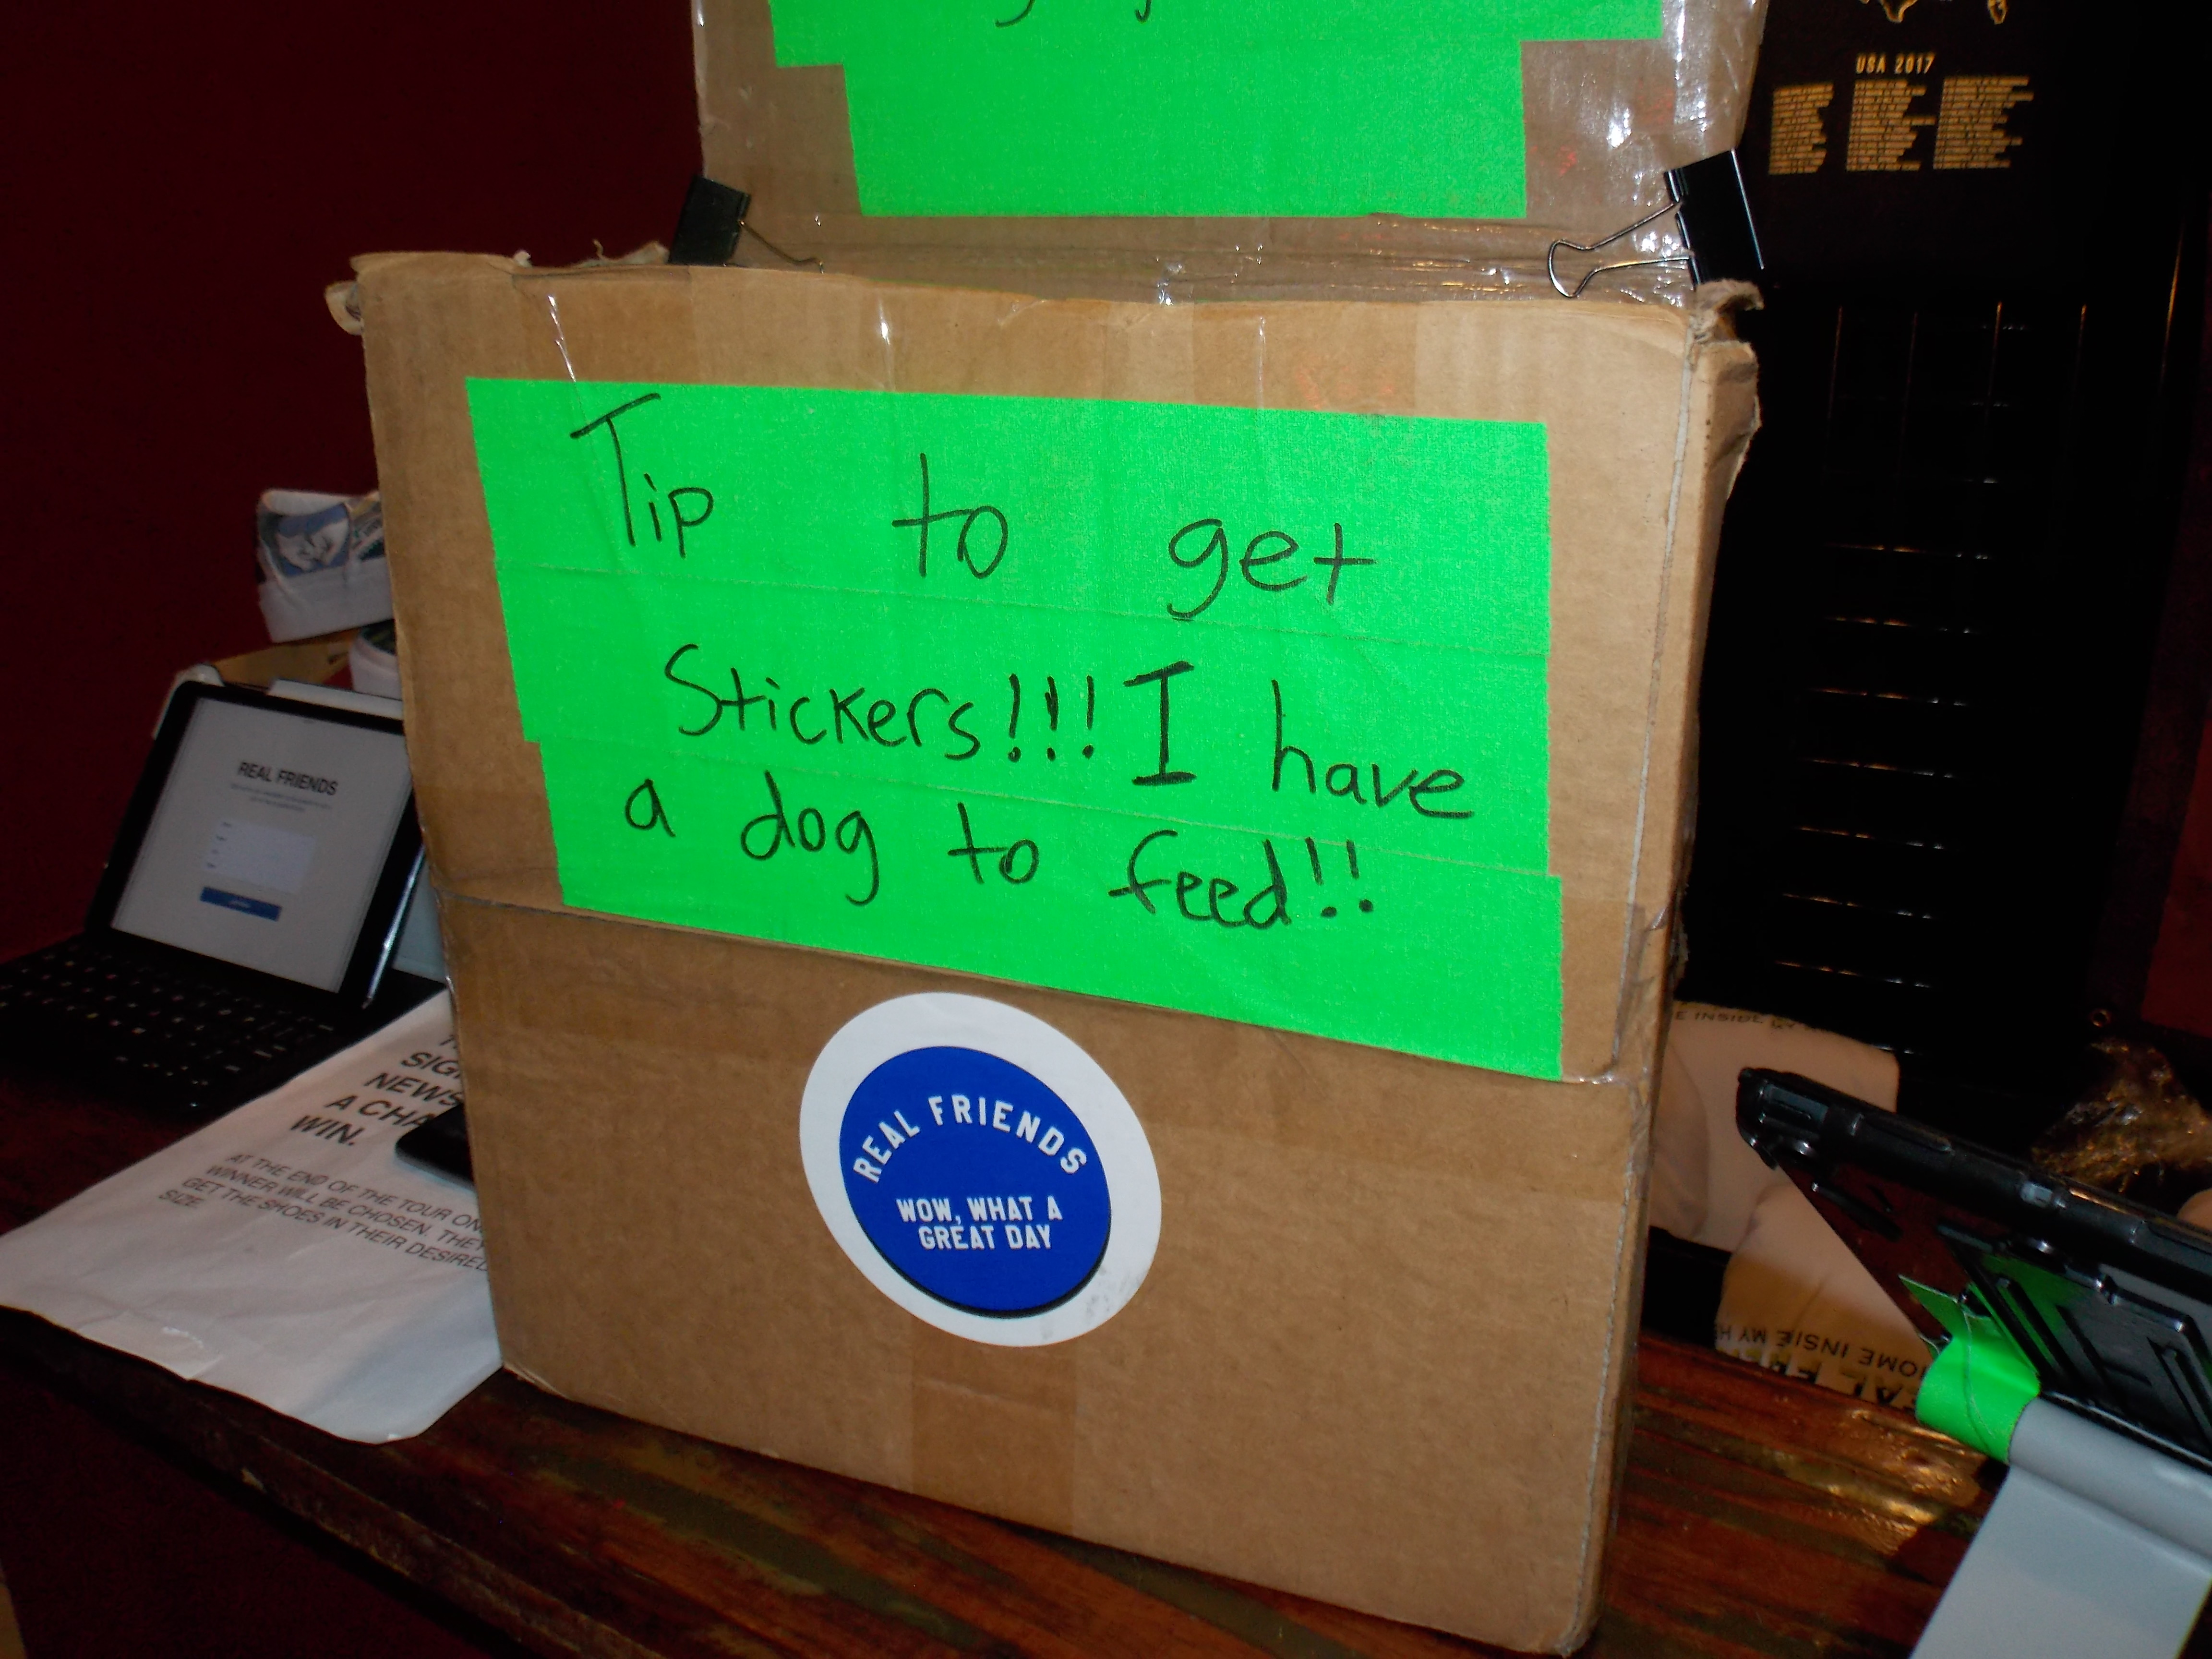 USA 2017
Tip to get
Stickers!!! I have
a dog to feed!!
REAL FRIENDS
WOW, WHAT A
GREAT DAY
REAL FRIENDS
A CHA
WIN.
AT THE END OF THE TOUR ON
WINNER WILL BE CHOSEN. THEY
GET THE SHOES IN THEIR DESIRED
SIZE
E INSIDE MY
HOME INSIE MY H